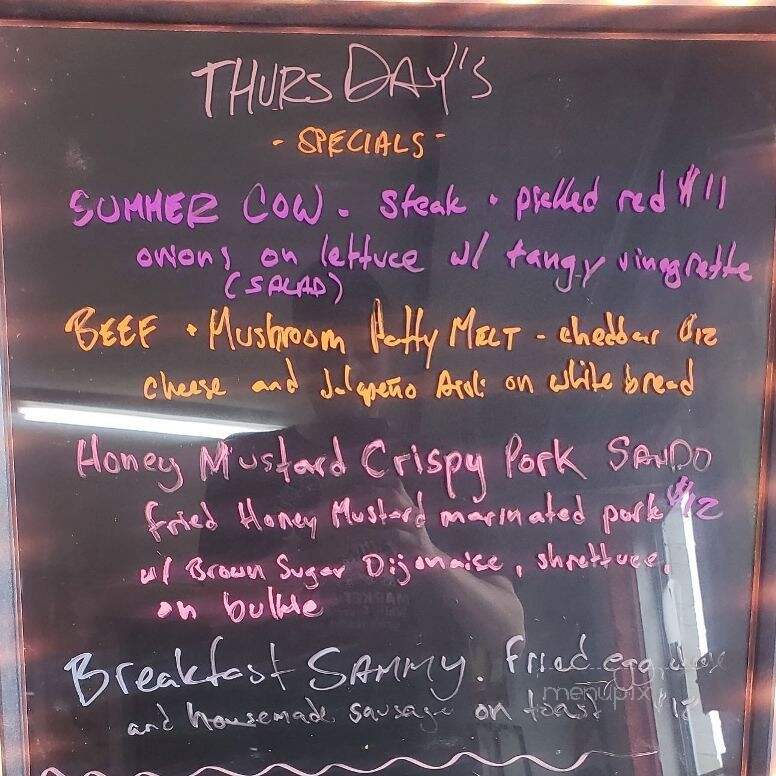 THURSDAY'S
- SPECIALS -
SUMMER COW - steak + pickled red $11
onions on lettuce w/ tangy vinagrette
(SALAD)
BEEF + Mushroom Patty MELT - cheddar $12
cheese and Jalapeño Aioli on white bread
Honey Mustard Crispy Pork SANDO
fried Honey Mustard marinated pork $12
w/ Brown Sugar Dijonaise, shrettuce,
on bulkie
Breakfast SAMMY. Fried egg,
menupix
and housemade sausage on toast